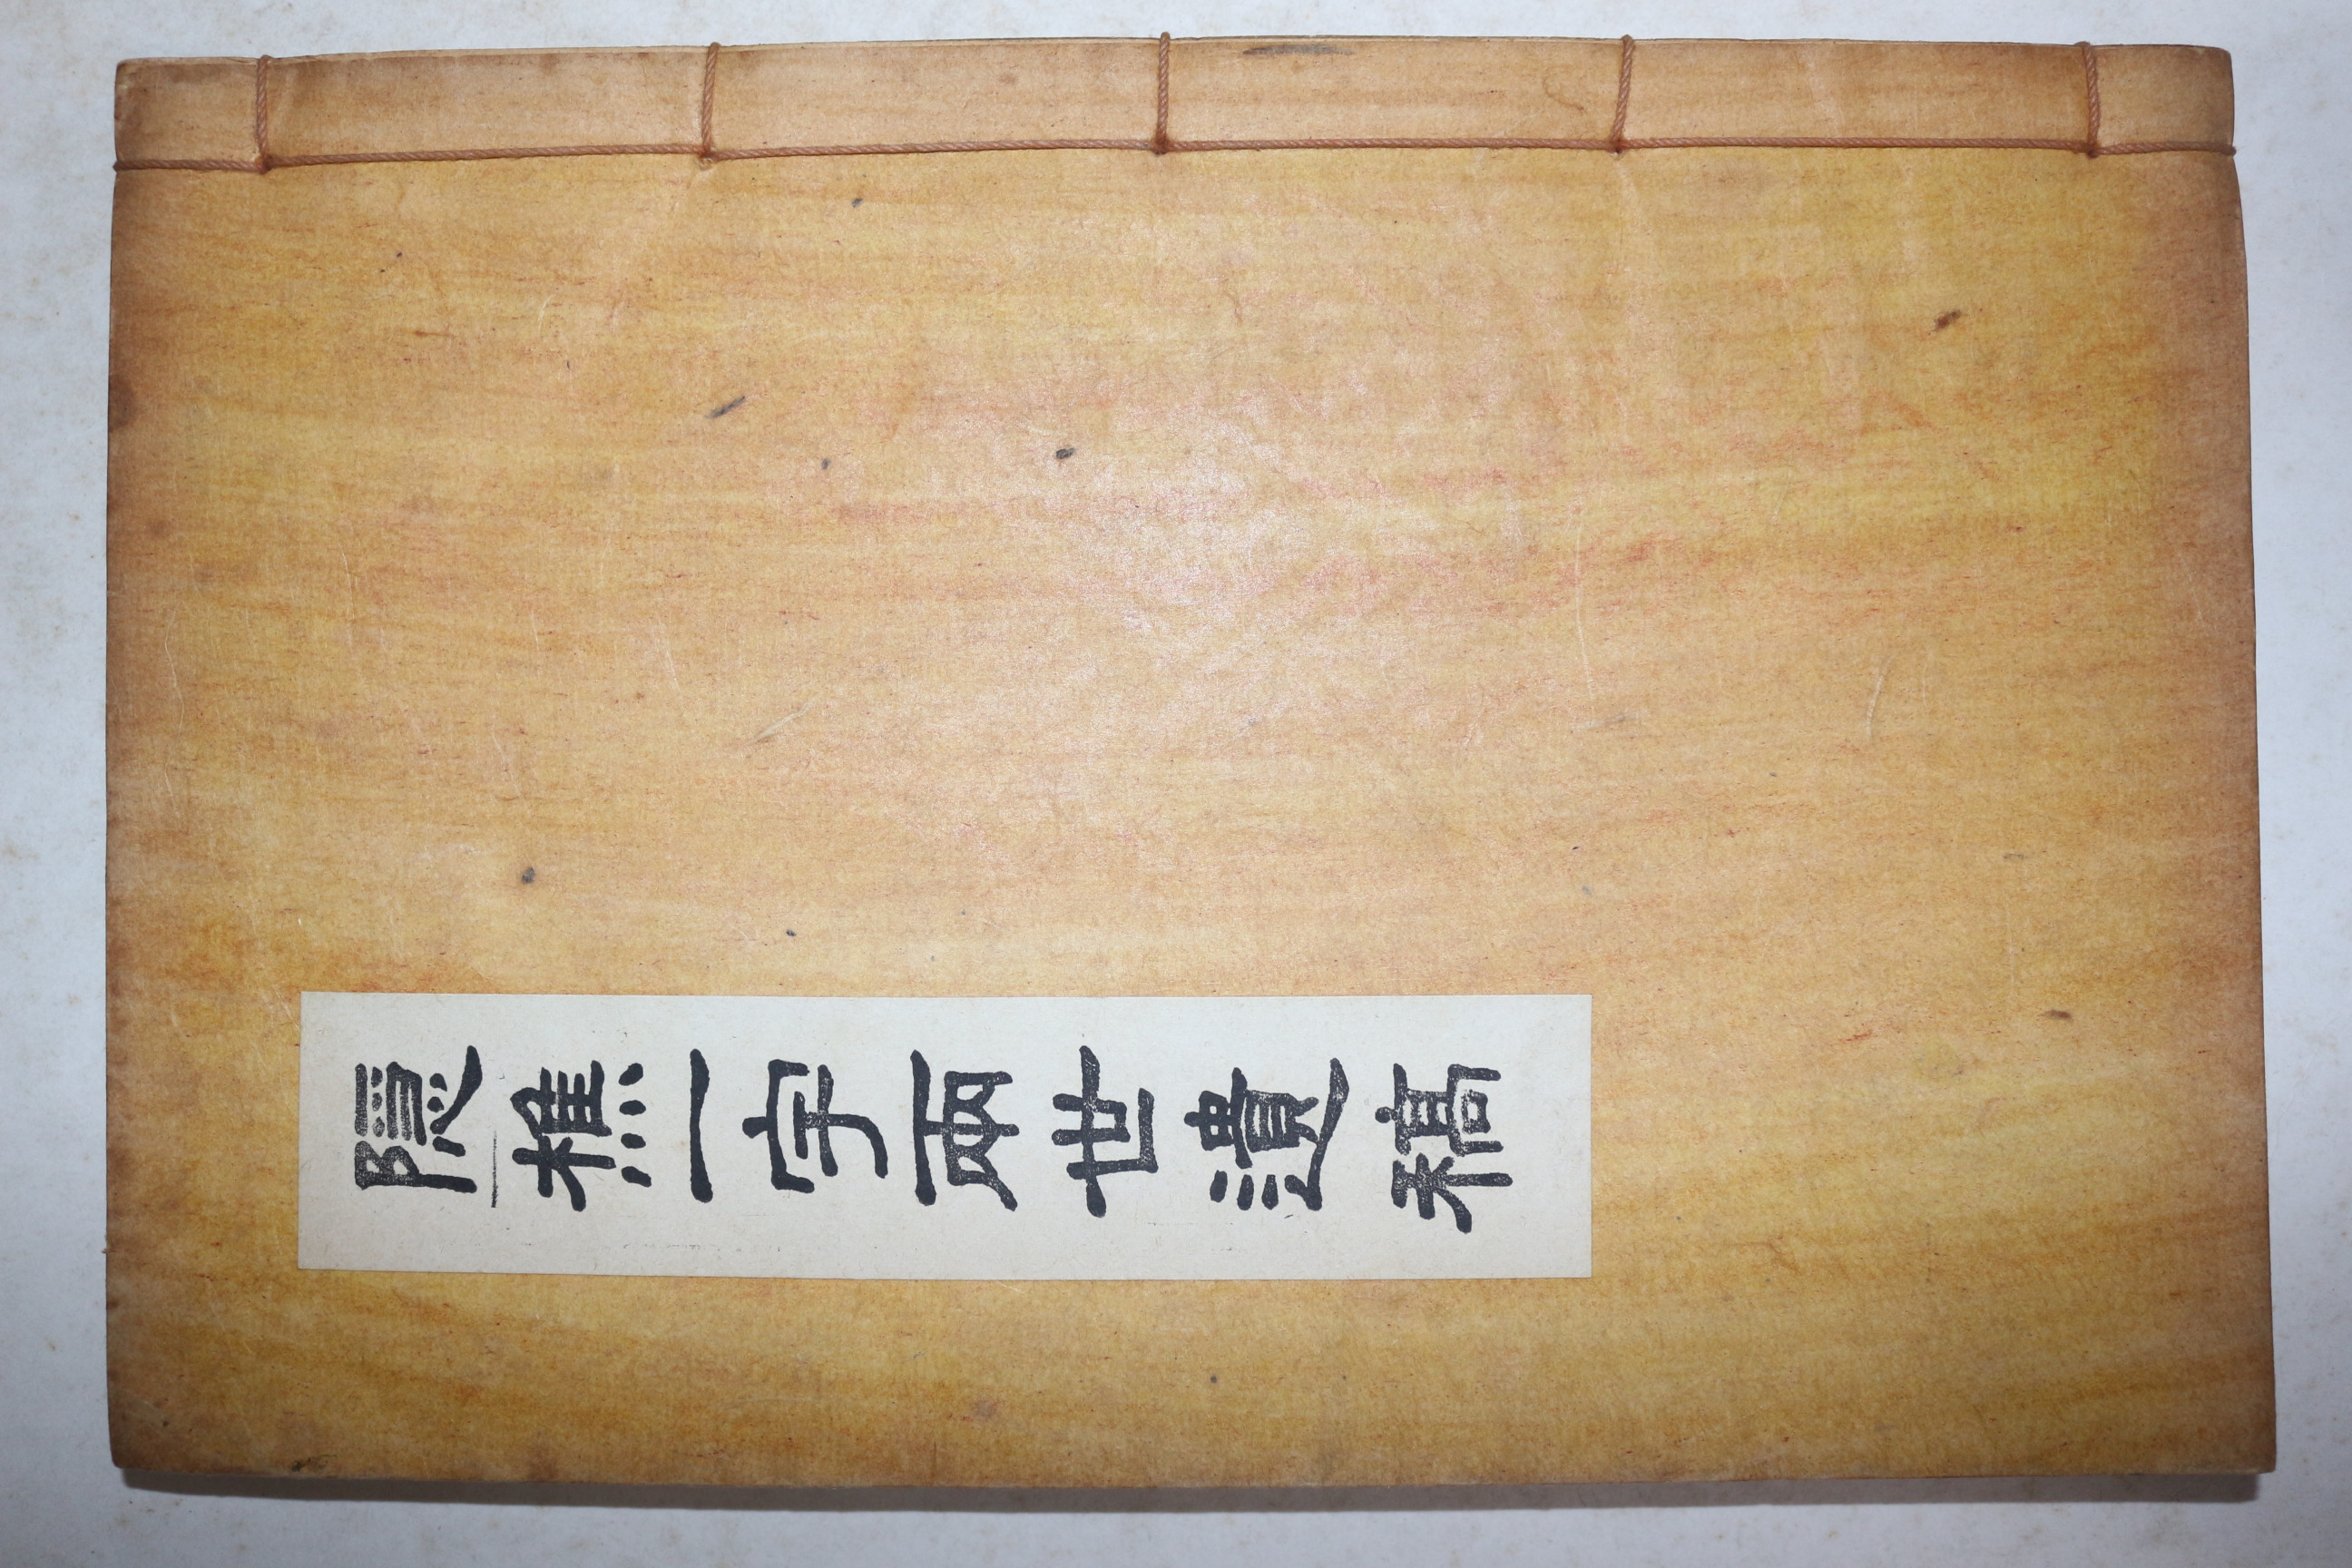 隱樵一字兩世遺稿